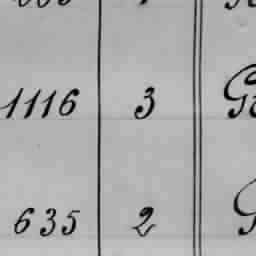 1116 3
635 2